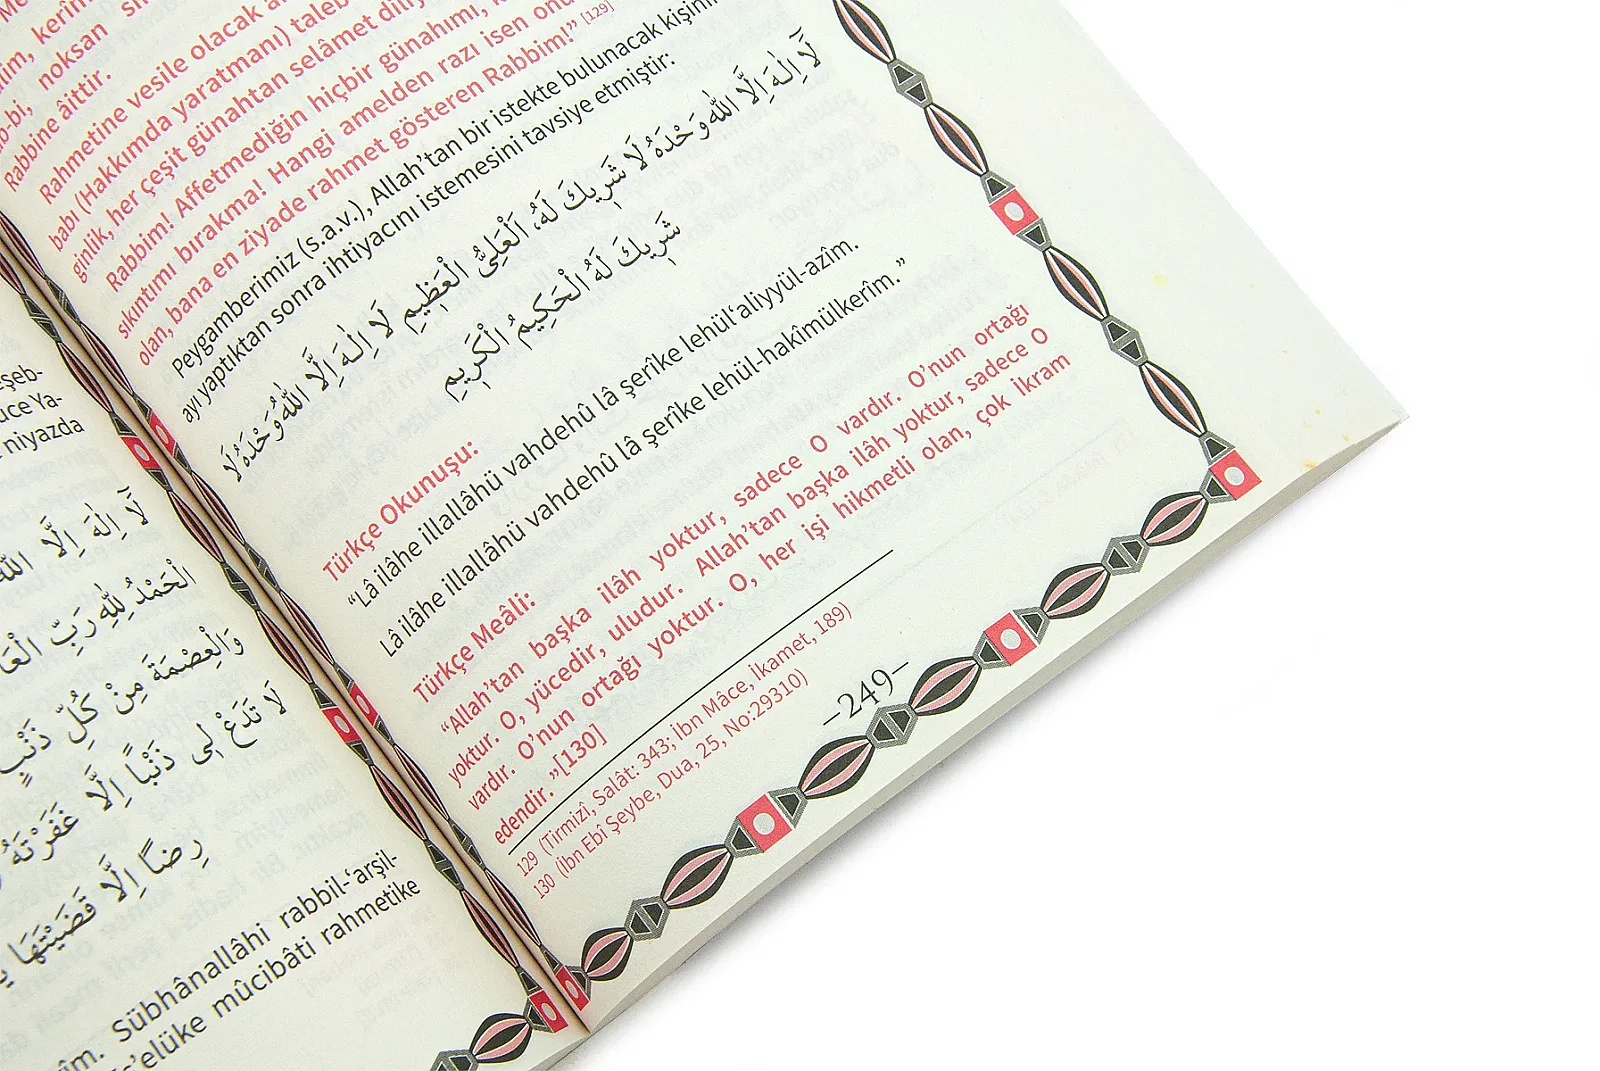 eşeb-
uce Ya-
niyazda
لَٓا اِلٰهَ اِلَّا اللّٰهُ
اَلْحَمْدُ لِلّٰهِ رَبِّ
وَالْعِصْمَةَ مِنْ كُلِّ ذَنْبٍ
لَا تَدَعْ ل۪ى ذَنْبًا اِلَّا غَفَرْتَهُ
رِضاً اِلَّا قَضَيْتَهَا
îm. Sübhânallâhi rabbil-‘arşil-
’elüke mûcibâti rahmetike
lîm, kerîm
b-bi, noksan
Rabbine âittir.
Rahmetine vesile olacak
babı (Hakkımda yaratmanı) taleb
ginlik, her çeşit günahtan selâmet
Rabbim! Affetmediğin hiçbir günahımı,
sıkıntımı bırakma! Hangi amelden razı isen
olan, bana en ziyade rahmet gösteren Rabbim!” [129]
Peygamberimiz (s.a.v.), Allah’tan bir istekte bulunacak
ayı yaptıktan sonra ihtiyacını istemesini tavsiye etmiştir:
لَٓا اِلٰهَ اِلَّا اللّٰهُ وَحْدَهُ لَا شَر۪يكَ لَهُ، اَلْعَلِىُّ الْعَظ۪يمِ لَٓا اِلٰهَ اِلَّا اللّٰهُ وَحْدَهُ لَا
شَر۪يكَ لَهُ الْحَك۪يمُ الْكَر۪يمِ
Türkçe Okunuşu:
“Lâ ilâhe illallâhü vahdehû lâ şerîke lehül‘aliyyül-azîm.
Lâ ilâhe illallâhü vahdehû lâ şerîke lehül-hakîmülkerîm.”
Türkçe Meâli:
“Allah’tan başka ilâh yoktur, sadece O vardır. O’nun ortağı
yoktur. O, yücedir, uludur. Allah’tan başka ilâh yoktur, sadece O
vardır. O’nun ortağı yoktur. O, her işi hikmetli olan, çok İkram
edendir. „[130]
129 (Tirmizî, Salât: 343; İbn Mâce, İkamet, 189)
130 (İbn Ebî Şeybe, Dua, 25, No:29310)
–249–